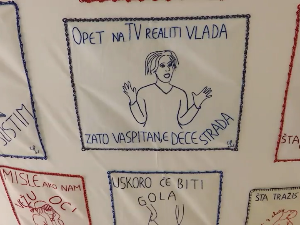 OPET NA TV REALITI VLADA
ZATO VASPITANJE DECE STRADA
USTIM
MISLE AKO NAM
U OCI
USKORO CE BITI
GOLA
STA TRAZIS